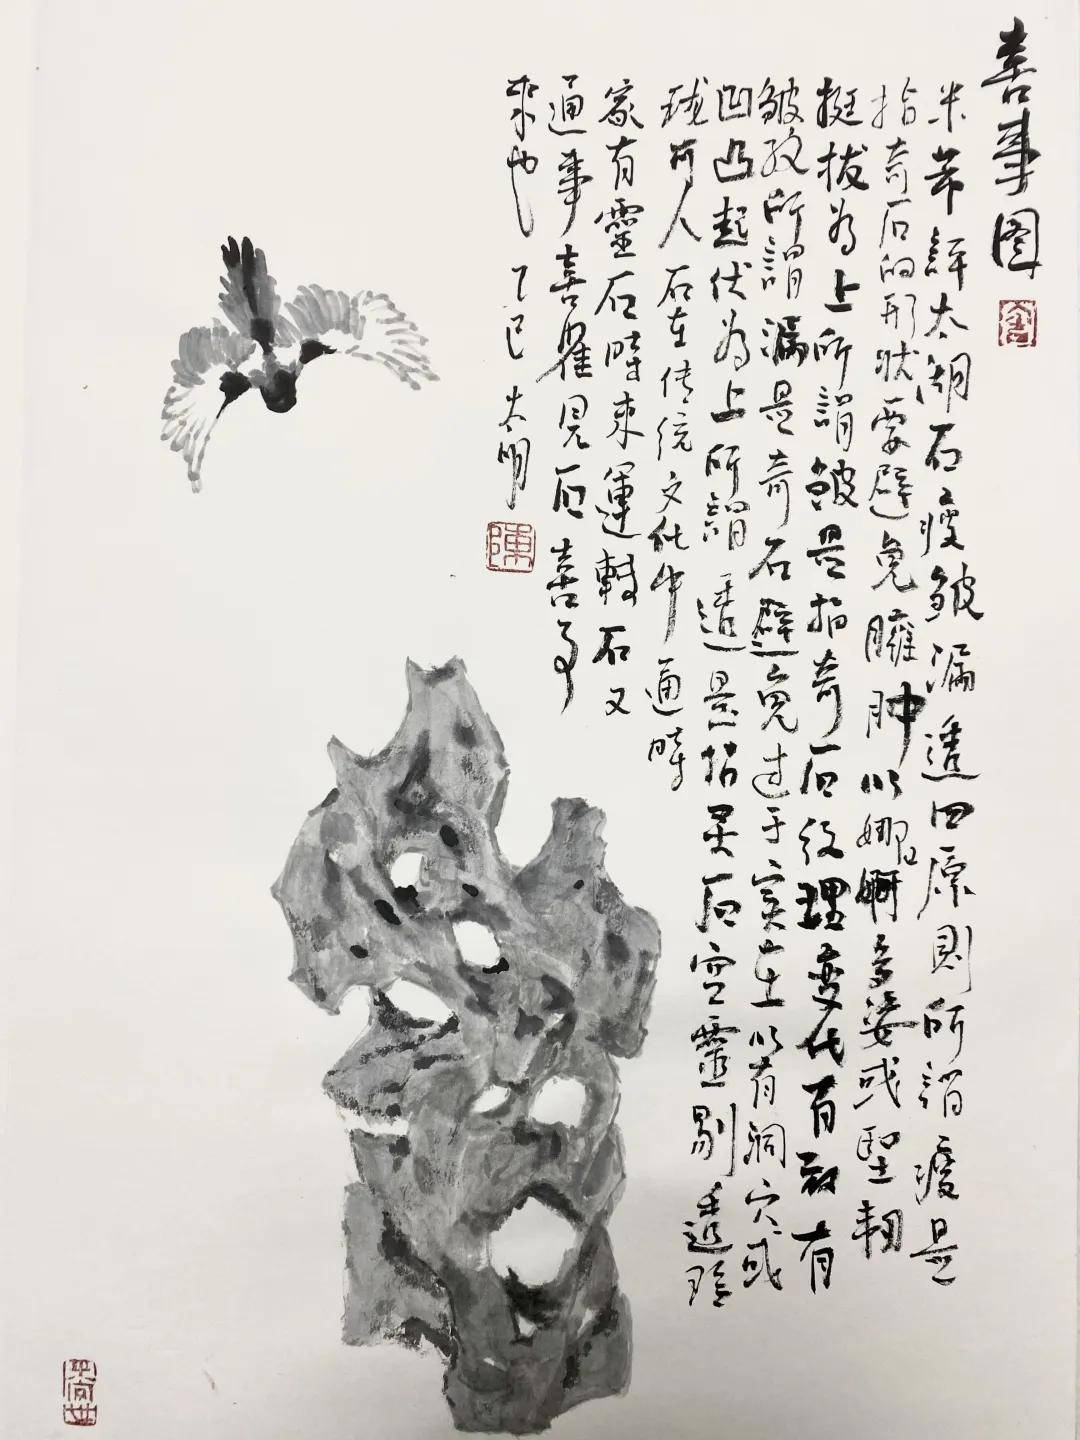 喜事图
米芾評太湖石瘦皱漏透四原则所謂瘦是
指奇石的形状要避免臃肿以婀娜多姿或坚韧
挺拔为上所謂皱是指奇石纹理变化有致有
皱纹所謂漏是奇石避免过于实在以有洞穴或
凹凸起伏为上所謂透是指灵石空靈剔透玲
珑可人石在传统文化中通時
家有靈石時来運轉石又
通事喜雀見石喜事
来也 乙巳 太明
陳